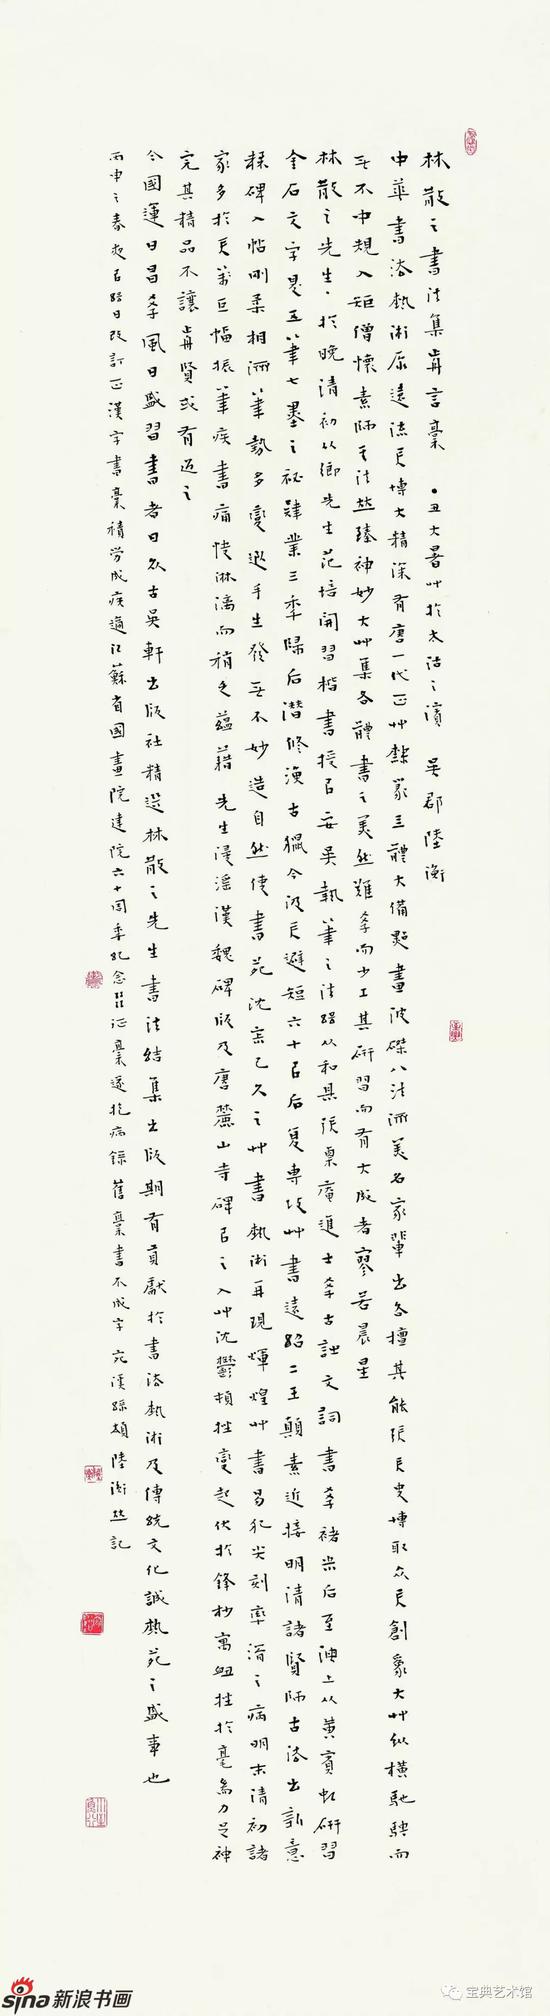 林散之书法集弁言稾 丑大暑艸於太沽之濱 吳郡陸衡
中華書法熱術原遠流長博大精深有唐一代正艸隸篆三體大備點畫波磔八法兩美名家輩出各擅其能張長史博取众長創象大艸纵橫馳騁而
无不中規入矩僧懷素师其法益臻神妙大艸集各體書之美然難學而少工其研習而有大成者寥若晨星
林散之先生於晚清初从鄉先生范培開習楷書授吕安吳執筆之法踣从和县張栗庵進士學古詁文詞書學褚米后至沪上从黄賓虹研習
金石文字是五筆七墨之祕肄業三季歸后潛修漁古獵今汲長避短六十吕后复專攻艸書遠紹二王顛素近接明清諸賢师古法出新意
糅碑入帖刚柔相济筆勢多變遐手生發无不妙造自然使書苑沈寂已久之艸書熱術再現煇煌艸書易犯尖刻率滑之病明末清初諸
家多於長箑巨幅振筆疾書痛快淋漓而稍乏蕴藉 先生浸淫漢魏碑版及唐麓山寺碑吕之入艸沈鬱頓挫變起伏於鋒杪寓衄挫於毫為力足神
完其精品不讓歬賢或有过之
今國運日昌學風日盛習書者日众古吳軒出版社精選林散之先生書法結集出版期有貢獻於書法熱術及傳統文化誠熱苑之盛事也
丙申之春夜吕踣日改訂正漢字書稾積勞成疾適江蘇省國畫院建院六十周季纪念 征稾遂抱病錄舊稾書不成字 陸衡 记
sina新浪书画
宝典艺术馆